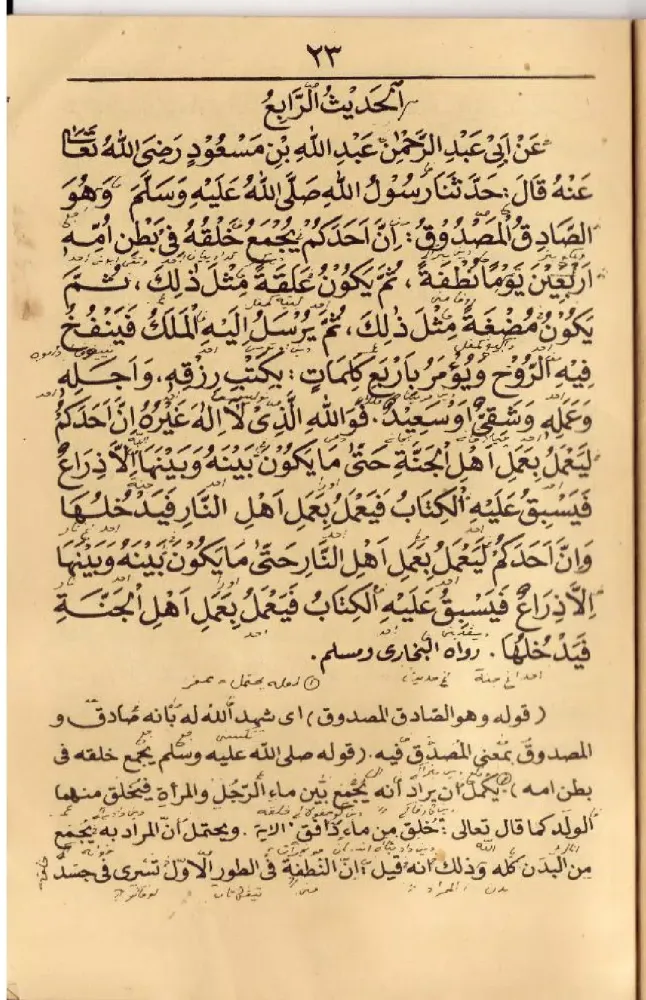 ٢٣
اَلْحَدِيْثُ الرَّابِعُ
عَنْ اَبِىْ عَبْدِ الرَّحْمٰنِ عَبْدِ اللهِ بْنِ مَسْعُوْدٍ رَضِىَ اللهُ تَعَالٰى
عَنْهُ قَالَ: حَدَّثَنَا رَسُوْلُ اللهِ صَلَّى اللهُ عَلَيْهِ وَسَلَّمَ وَهُوَ
الصَّادِقُ الْمَصْدُوْقُ: اِنَّ اَحَدَكُمْ يُجْمَعُ خَلْقُهُ فِىْ بَطْنِ اُمِّهِ
اَرْبَعِيْنَ يَوْمًا نُطْفَةً، ثُمَّ يَكُوْنُ عَلَقَةً مِثْلَ ذٰلِكَ، ثُمَّ
يَكُوْنُ مُضْغَةً مِثْلَ ذٰلِكَ، ثُمَّ يُرْسَلُ اِلَيْهِ الْمَلَكُ فَيَنْفُخُ
فِيْهِ الرُّوْحَ وَيُؤْمَرُ بِاَرْبَعِ كَلِمَاتٍ: يَكْتُبُ رِزْقِهِ، وَاَجَلِهِ
وَعَمَلِهِ وَشَقِىٌّ اَوْ سَعِيْدٌ. فَوَاللهِ الَّذِىْ لَا اِلٰهَ غَيْرُهُ اِنَّ اَحَدَكُمْ
لَيَعْمَلُ بِعَمَلِ اَهْلِ الْجَنَّةِ حَتّٰى مَا يَكُوْنَ بَيْنَهُ وَبَيْنَهَا اِلَّا ذِرَاعٌ
فَيَسْبِقُ عَلَيْهِ الْكِتَابُ فَيَعْمَلُ بِعَمَلِ اَهْلِ النَّارِ فَيَدْخُلُهَا
وَاِنَّ اَحَدَكُمْ لَيَعْمَلُ بِعَمَلِ اَهْلِ النَّارِ حَتّٰى مَا يَكُوْنَ بَيْنَهُ وَبَيْنَهَا
اِلَّا ذِرَاعٌ فَيَسْبِقُ عَلَيْهِ الْكِتَابُ فَيَعْمَلُ بِعَمَلِ اَهْلِ الْجَنَّةِ
فَيَدْخُلُهَا. رواه البخارى ومسلم.
(قوله وهو الصادق المصدوق) اى شهد الله له بانه صادق و
المصدوق بمعنى المصدق فيه. (قوله صلى الله عليه وسلم يجمع خلقه فى
بطن امه) يحتمل ان يراد أنه يجمع بين ماء الرجل والمرأة فيخلق منهما
الولد كما قال تعالى: خلق من ماء دافق. الاية. ويحتمل أن المراد به يجمع
من البدن كله وذلك انه قيل: ان النطفة فى الطور الاول تسرى فى جسد